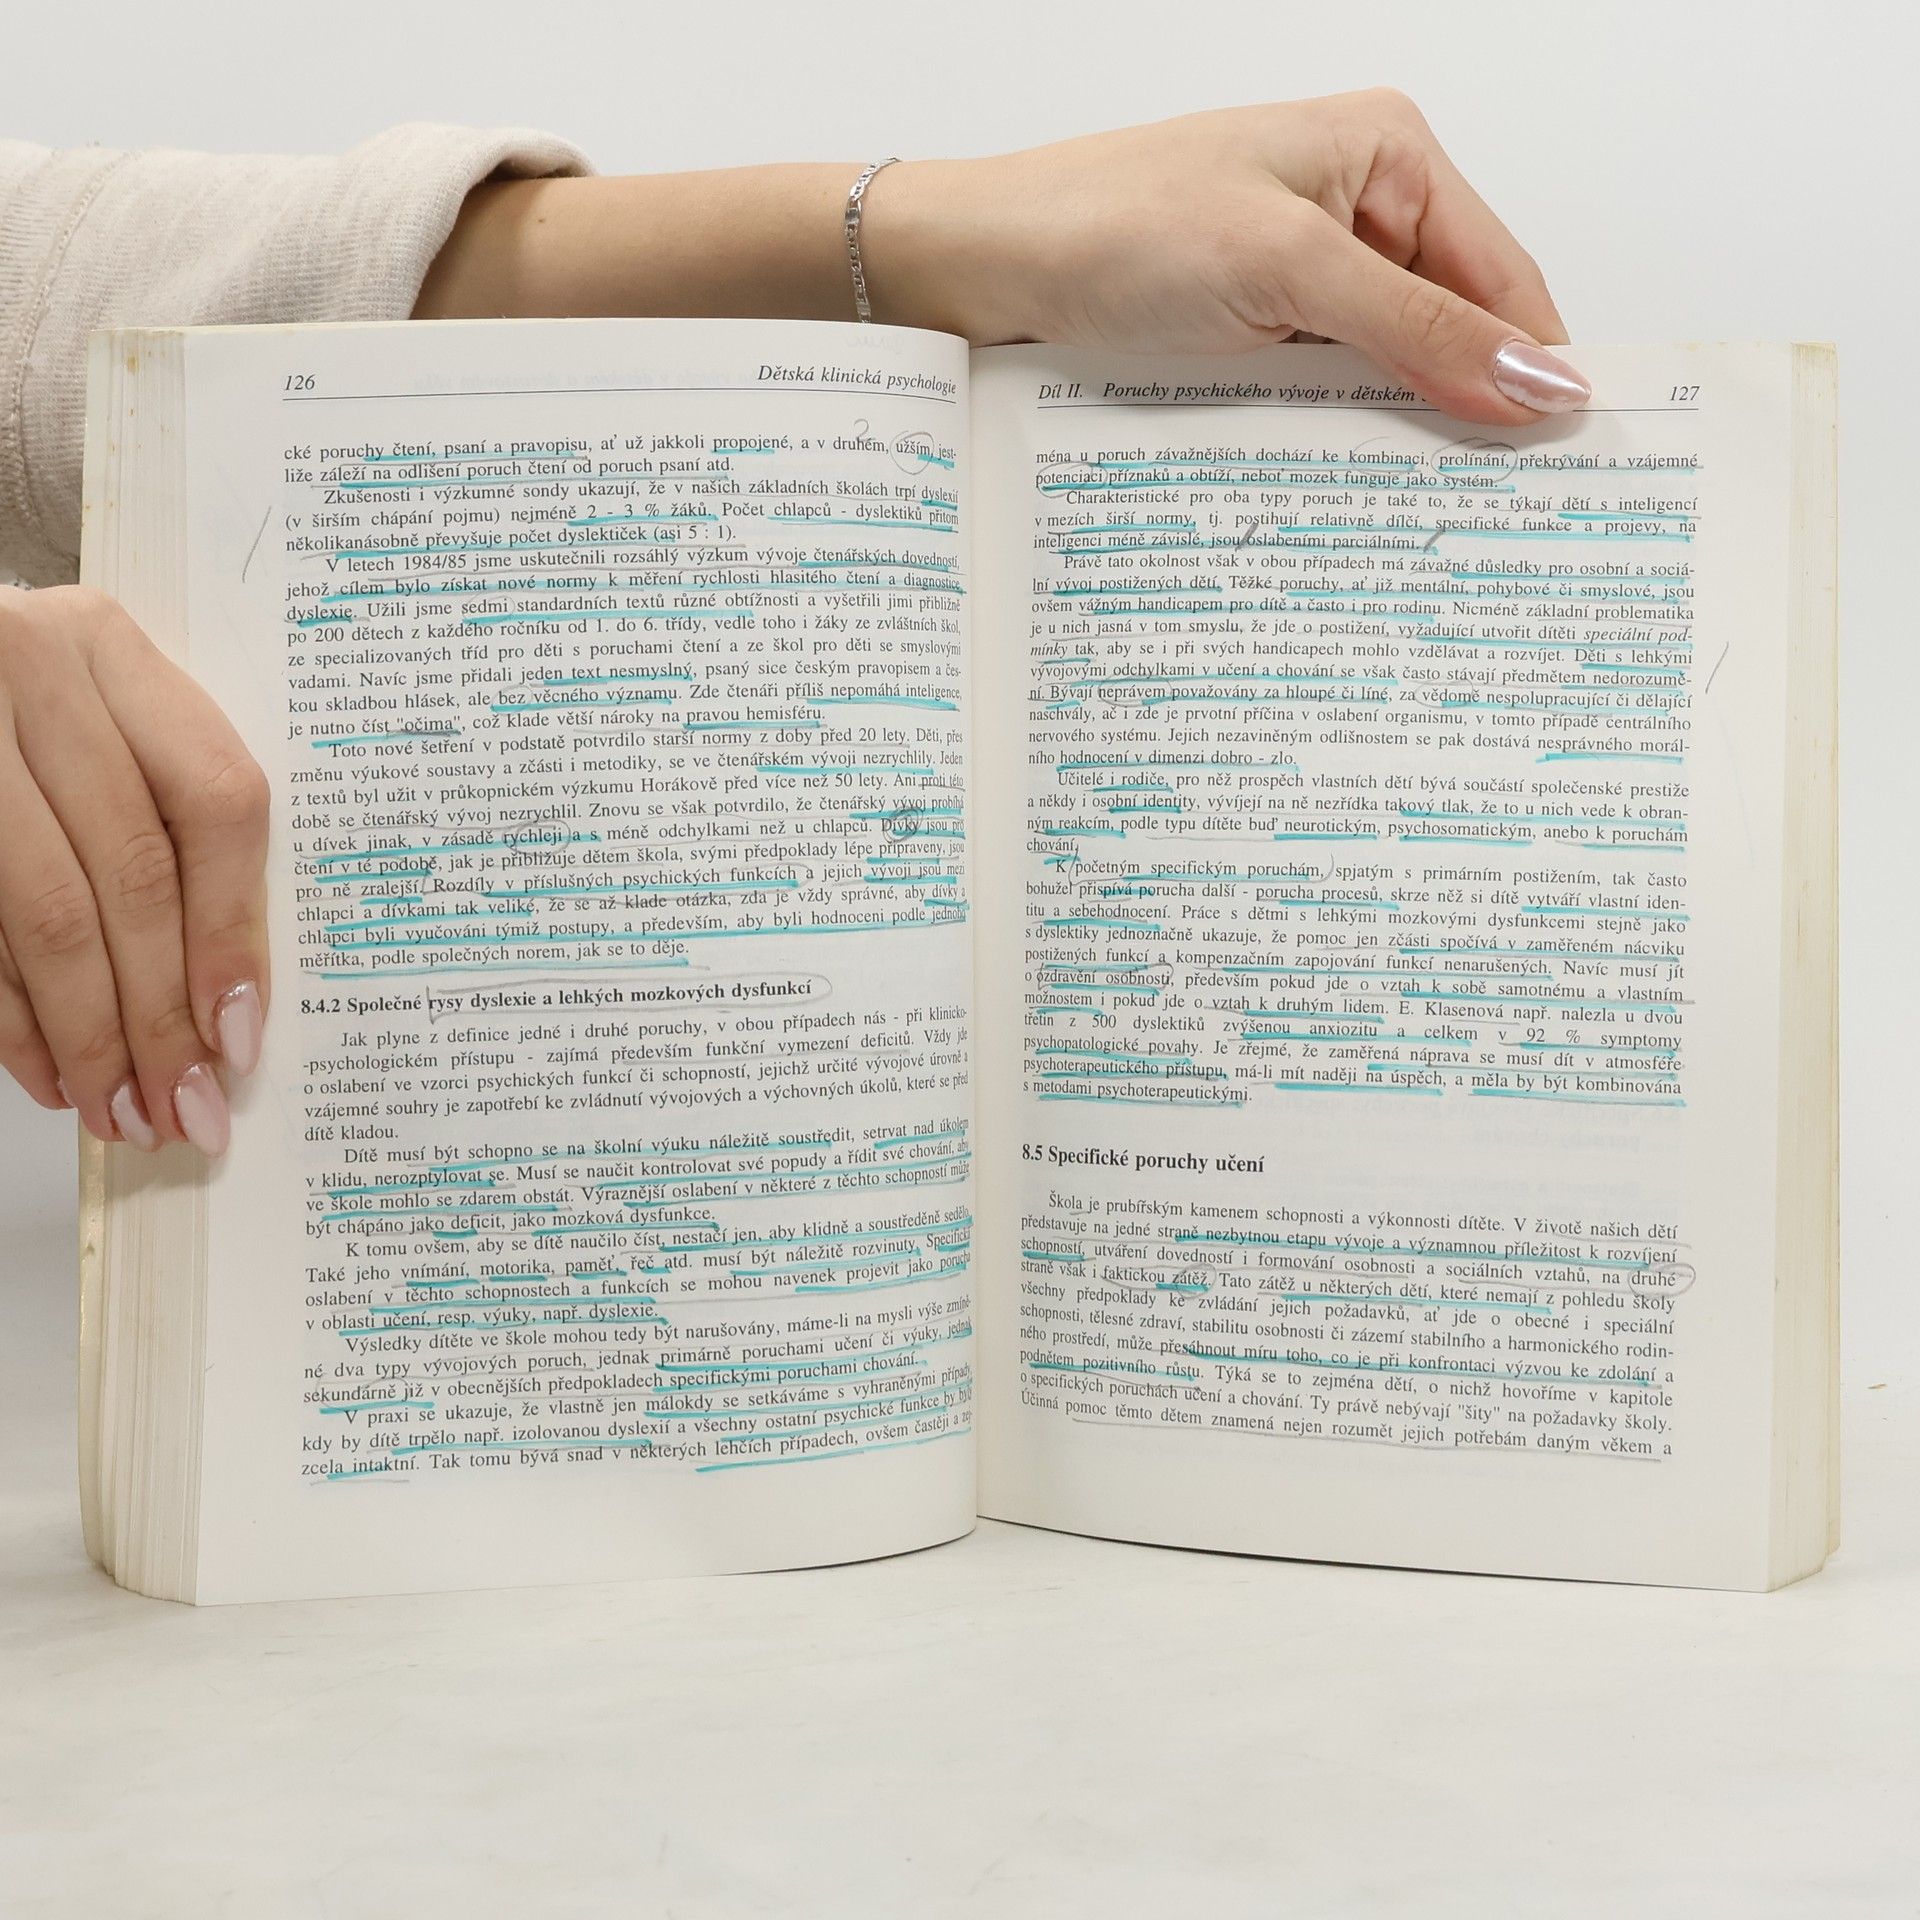 126 Dětská klinická psychologie
cké poruchy čtení, psaní a pravopisu, ať už jakkoli propojené, a v druhém, užším, jest-
liže záleží na odlišení poruch čtení od poruch psaní atd.
Zkušenosti i výzkumné sondy ukazují, že v našich základních školách trpí dyslexií
(v širším chápání pojmu) nejméně 2 - 3 % žáků. Počet chlapců - dyslektiků přitom
několikanásobně převyšuje počet dyslektiček (asi 5 : 1).
V letech 1984/85 jsme uskutečnili rozsáhlý výzkum vývoje čtenářských dovedností,
jehož cílem bylo získat nové normy k měření rychlosti hlasitého čtení a diagnostice
dyslexie. Užili jsme sedmi standardních textů různé obtížnosti a vyšetřili jimi přibližně
po 200 dětech z každého ročníku od 1. do 6. třídy, vedle toho i žáky ze zvláštních škol,
ze specializovaných tříd pro děti s poruchami čtení a ze škol pro děti se smyslovými
vadami. Navíc jsme přidali jeden text nesmyslný, psaný sice českým pravopisem a čes-
kou skladbou hlásek, ale bez věcného významu. Zde čtenáři příliš nepomáhá inteligence,
je nutno číst "očima", což klade větší nároky na pravou hemisféru.
Toto nové šetření v podstatě potvrdilo starší normy z doby před 20 lety. Děti, přes
změnu výukové soustavy a zčásti i metodiky, se ve čtenářském vývoji nezrychlily. Jeden
z textů byl užit v průkopnickém výzkumu Horákově před více než 50 lety. Ani proti této
době se čtenářský vývoj nezrychlil. Znovu se však potvrdilo, že čtenářský vývoj probíhá
u dívek jinak, v zásadě rychleji a s méně odchylkami než u chlapců. Dívky jsou pro
čtení v té podobě, jak je přibližuje dětem škola, svými předpoklady lépe připraveny, jsou
pro ně zralejší. Rozdíly v příslušných psychických funkcích a jejich vývoji jsou mezi
chlapci a dívkami tak veliké, že se až klade otázka, zda je vždy správné, aby dívky a
chlapci byli vyučováni týmiž postupy, a především, aby byli hodnoceni podle jednoho
měřítka, podle společných norem, jak se to děje.
8.4.2 Společné rysy dyslexie a lehkých mozkových dysfunkcí
Jak plyne z definice jedné i druhé poruchy, v obou případech nás - při klinicko-
-psychologickém přístupu - zajímá především funkční vymezení deficitů. Vždy jde
o oslabení ve vzorci psychických funkcí či schopností, jejichž určité vývojové úrovně a
vzájemné souhry je zapotřebí ke zvládnutí vývojových a výchovných úkolů, které se před
dítě kladou.
Dítě musí být schopno se na školní výuku náležitě soustředit, setrvat nad úkolem
v klidu, nerozptylovat se. Musí se naučit kontrolovat své popudy a řídit své chování, aby
ve škole mohlo se zdarem obstát. Výraznější oslabení v některé z těchto schopností může
být chápáno jako deficit, jako mozková dysfunkce.
K tomu ovšem, aby se dítě naučilo číst, nestačí jen, aby klidně a soustředěně sedělo.
Také jeho vnímání, motorika, paměť, řeč atd. musí být náležitě rozvinuty. Specifická
oslabení v těchto schopnostech a funkcích se mohou navenek projevit jako porucha
v oblasti učení, resp. výuky, např. dyslexie.
Výsledky dítěte ve škole mohou tedy být narušovány, máme-li na mysli výše zmíně-
né dva typy vývojových poruch, jednak primárně poruchami učení či výuky, jednak
sekundárně již v obecnějších předpokladech specifickými poruchami chování.
V praxi se ukazuje, že vlastně jen málokdy se setkáváme s vyhraněnými případy,
kdy by dítě trpělo např. izolovanou dyslexií a všechny ostatní psychické funkce by byly
zcela intaktní. Tak tomu bývá snad v některých lehčích případech, ovšem častěji a zej-
Díl II. Poruchy psychického vývoje v dětském 127
ména u poruch závažnějších dochází ke kombinaci, prolínání, překrývání a vzájemné
potenciaci příznaků a obtíží, neboť mozek funguje jako systém.
Charakteristické pro oba typy poruch je také to, že se týkají dětí s inteligencí
v mezích širší normy, tj. postihují relativně dílčí, specifické funkce a projevy, na
inteligenci méně závislé, jsou oslabeními parciálními.
Právě tato okolnost však v obou případech má závažné důsledky pro osobní a sociá-
lní vývoj postižených dětí. Těžké poruchy, ať již mentální, pohybové či smyslové, jsou
ovšem vážným handicapem pro dítě a často i pro rodinu. Nicméně základní problematika
je u nich jasná v tom smyslu, že jde o postižení, vyžadující utvořit dítěti speciální pod-
mínky tak, aby se i při svých handicapech mohlo vzdělávat a rozvíjet. Děti s lehkými
vývojovými odchylkami v učení a chování se však často stávají předmětem nedorozumě-
ní. Bývají neprávem považovány za hloupé či líné, za vědomě nespolupracující či dělající
naschvály, ač i zde je prvotní příčina v oslabení organismu, v tomto případě centrálního
nervového systému. Jejich nezaviněným odlišnostem se pak dostává nesprávného morál-
ního hodnocení v dimenzi dobro - zlo.
Učitelé i rodiče, pro něž prospěch vlastních dětí bývá součástí společenské prestiže
a někdy i osobní identity, vyvíjejí na ně nezřídka takový tlak, že to u nich vede k obran-
ným reakcím, podle typu dítěte buď neurotickým, psychosomatickým, anebo k poruchám
chování.
K početným specifickým poruchám, spjatým s primárním postižením, tak často
bohužel přispívá porucha další - porucha procesů, skrze něž si dítě vytváří vlastní iden-
titu a sebehodnocení. Práce s dětmi s lehkými mozkovými dysfunkcemi stejně jako
s dyslektiky jednoznačně ukazuje, že pomoc jen zčásti spočívá v zaměřeném nácviku
postižených funkcí a kompenzačním zapojování funkcí nenarušených. Navíc musí jít
o ozdravění osobnosti, především pokud jde o vztah k sobě samotnému a vlastním
možnostem i pokud jde o vztah k druhým lidem. E. Klasenová např. nalezla u dvou
třetin z 500 dyslektiků zvýšenou anxiozitu a celkem v 92 % symptomy
psychopatologické povahy. Je zřejmé, že zaměřená náprava se musí dít v atmosféře
psychoterapeutického přístupu, má-li mít naději na úspěch, a měla by být kombinována
s metodami psychoterapeutickými.
8.5 Specifické poruchy učení
Škola je prubířským kamenem schopnosti a výkonnosti dítěte. V životě našich dětí
představuje na jedné straně nezbytnou etapu vývoje a významnou příležitost k rozvíjení
schopností, utváření dovedností i formování osobnosti a sociálních vztahů, na druhé
straně však i faktickou zátěž. Tato zátěž u některých dětí, které nemají z pohledu školy
všechny předpoklady ke zvládání jejich požadavků, ať jde o obecné i speciální
schopnosti, tělesné zdraví, stabilitu osobnosti či zázemí stabilního a harmonického rodin-
ného prostředí, může přesáhnout míru toho, co je při konfrontaci výzvou ke zdolání a
podnětem pozitivního růstu. Týká se to zejména dětí, o nichž hovoříme v kapitole
o specifických poruchách učení a chování. Ty právě nebývají "šity" na požadavky školy.
Účinná pomoc těmto dětem znamená nejen rozumět jejich potřebám daným věkem a